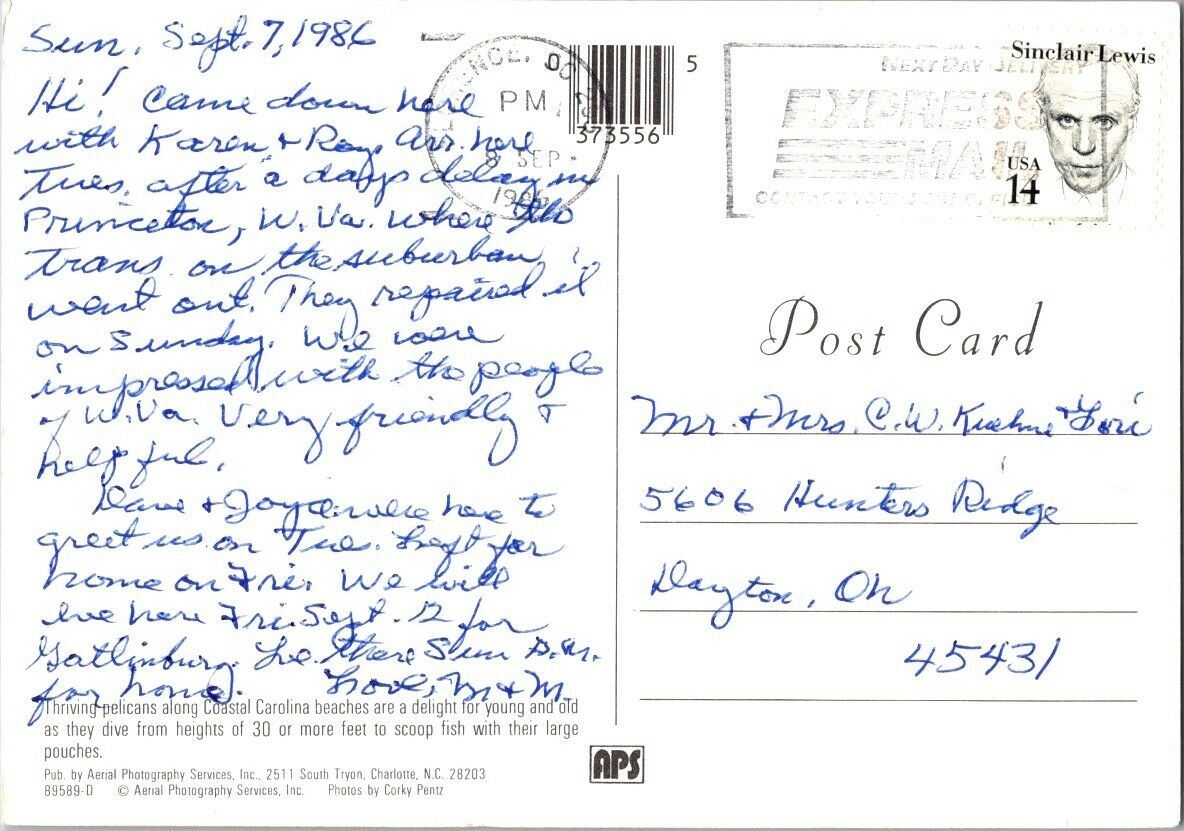 Sun. Sept. 7, 1986
Hi! Came down here
with Karen & Ray. Arr. here
Tues. after a days delay in
Princeton, W. Va. where the
trans. on the suburban
went out. They repaired it
on Sunday. We were
impressed with the people
of W. Va. Very friendly &
helpful.
Dave & Joyce were here to
greet us on Tues. Left for
home on Fri. We will
lve here Fri. Sept. 12 for
Gatlinburg. Lve there Sun A.M.
for home. Love, M & M.
Thriving pelicans along Coastal Carolina beaches are a delight for young and old
as they dive from heights of 30 or more feet to scoop fish with their large
pouches.
Pub. by Aerial Photography Services, Inc., 2511 South Tryon, Charlotte, N.C. 28203
89589-D © Aerial Photography Services, Inc. Photos by Corky Pentz
APS
PM
8 SEP
5
373556
NEXT DAY DELIVERY
EXPRESS
MAIL
Sinclair Lewis
USA
14
Post Card
Mr. & Mrs. C.W. Kuehne & Lori
5606 Hunters Ridge
Dayton, Oh
45431